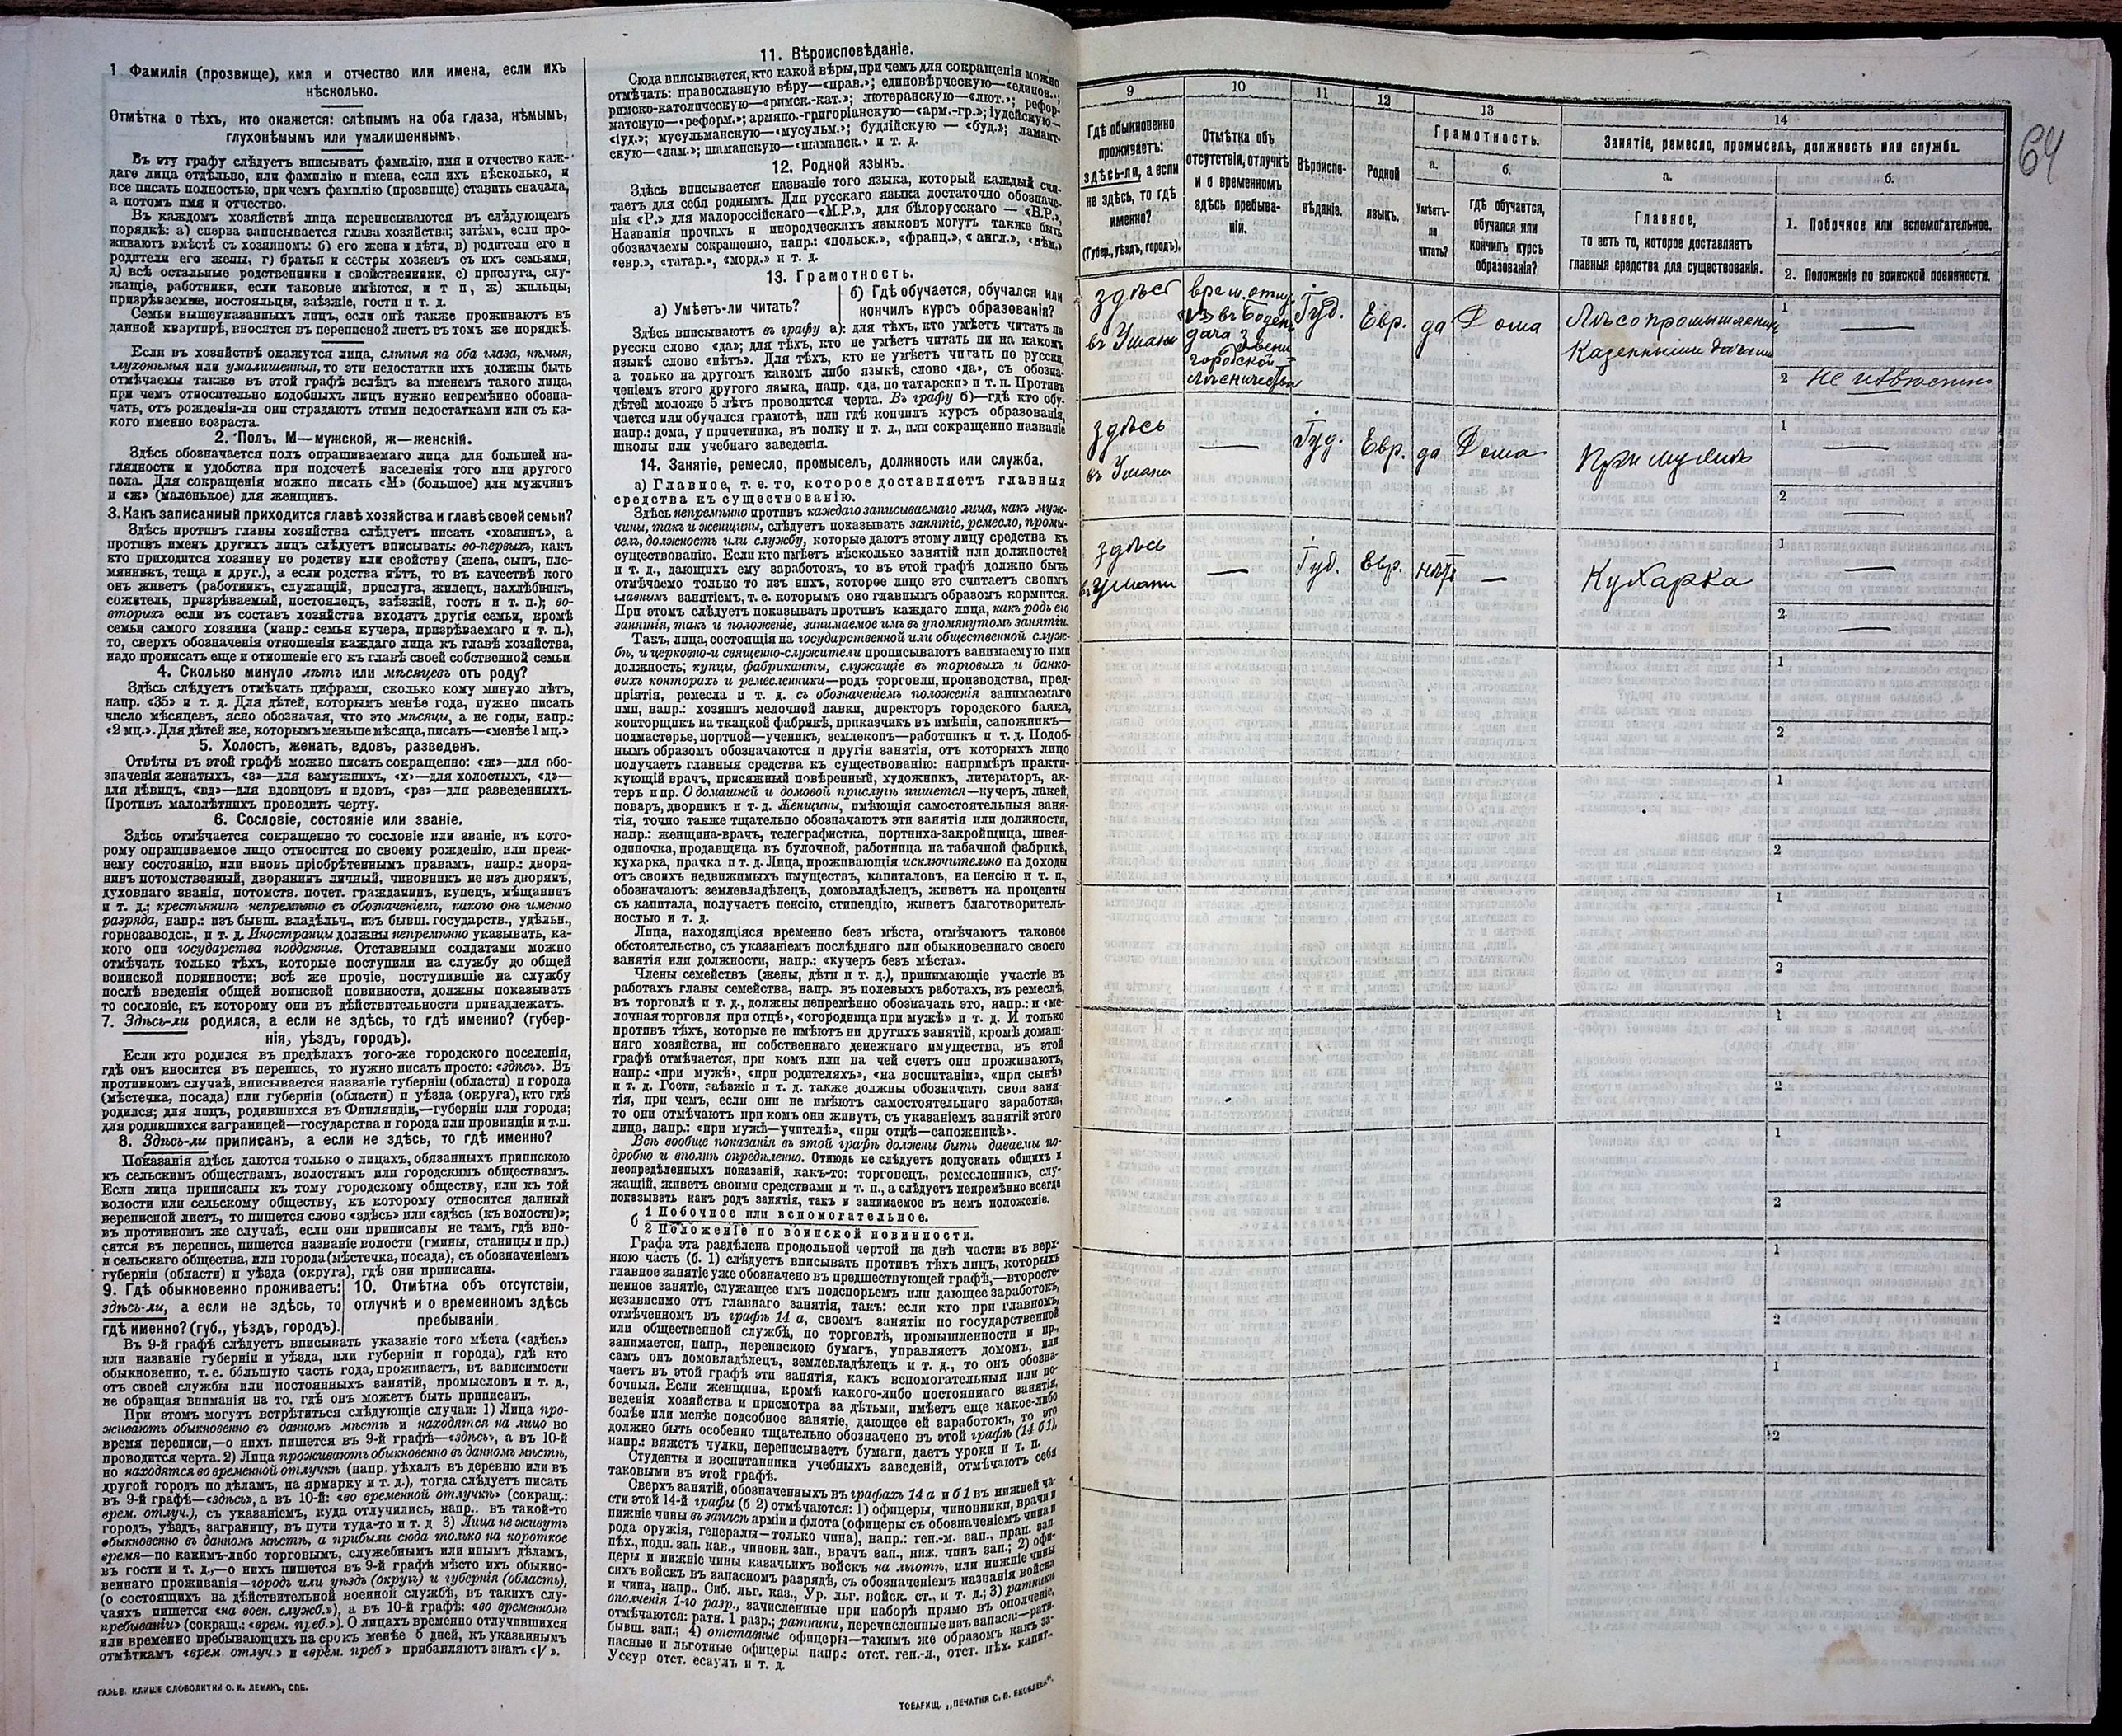 1 Фамилія (прозвище), имя и отчество или имена, если ихъ
нѣсколько.
Отмѣтка о тѣхъ, кто окажется: слѣпымъ на оба глаза, нѣмымъ,
глухонѣмымъ или умалишеннымъ.
Въ эту графу слѣдуетъ вписывать фамилію, имя и отчество каж-
даго лица отдѣльно, или фамилію и имена, если ихъ нѣсколько, и
все писать полностью, при чемъ фамилію (прозвище) ставить сначала,
а потомъ имя и отчество.
Въ каждомъ хозяйствѣ лица переписываются въ слѣдующемъ
порядкѣ: а) сперва записывается глава хозяйства; затѣмъ, если про-
живаютъ вмѣстѣ съ хозяиномъ: б) его жена и дѣти, в) родители его и
родители его жены, г) братья и сестры хозяевъ съ ихъ семьями,
д) всѣ остальные родственники и свойственники, е) прислуга, слу-
жащіе, работники, если таковые имѣются, и т п, ж) жильцы,
призрѣваемые, постояльцы, заѣзжіе, гости и т. д.
Семьи вышеуказанныхъ лицъ, если онѣ также проживаютъ въ
данной квартирѣ, вносятся въ переписной листъ въ томъ же порядкѣ.
Если въ хозяйствѣ окажутся лица, слѣпыя на оба глаза, нѣмыя,
глухонѣмыя или умалишенныя, то эти недостатки ихъ должны быть
отмѣчаемы также въ этой графѣ вслѣдъ за именемъ такого лица,
при чемъ относительно подобныхъ лицъ нужно непремѣнно обозна-
чать, отъ рожденія-ли они страдаютъ этими недостатками или съ ка-
кого именно возраста.
2. Полъ. М—мужской, ж—женскій.
Здѣсь обозначается полъ опрашиваемаго лица для большей на-
глядности и удобства при подсчетѣ населенія того или другого
пола. Для сокращенія можно писать «М» (большое) для мужчинъ
и «ж» (маленькое) для женщинъ.
3. Какъ записанный приходится главѣ хозяйства и главѣ своей семьи?
Здѣсь противъ главы хозяйства слѣдуетъ писать «хозяинъ», а
противъ именъ другихъ лицъ слѣдуетъ вписывать: во-первыхъ, какъ
кто приходится хозяину по родству или свойству (жена, сынъ, пле-
мянникъ, теща и друг.), а если родства нѣтъ, то въ качествѣ кого
онъ живетъ (работникъ, служащій, прислуга, жилецъ, нахлѣбникъ,
сожитель, призрѣваемый, постоялецъ, заѣзжій, гость и т. п.); во-
вторыхъ если въ составъ хозяйства входятъ другія семьи, кромѣ
семьи самого хозяина (напр.: семья кучера, призрѣваемаго и т. п.),
то, сверхъ обозначенія отношенія каждаго лица къ главѣ хозяйства,
надо прописать еще и отношеніе его къ главѣ своей собственной семьи
4. Сколько минуло лѣтъ или мѣсяцевъ отъ роду?
Здѣсь слѣдуетъ отмѣчать цифрами, сколько кому минуло лѣтъ,
напр. «35» и т. д. Для дѣтей, которымъ менѣе года, нужно писать
число мѣсяцевъ, ясно обозначая, что это мѣсяцы, а не годы, напр.:
«2 мц.». Для дѣтей же, которымъ меньше мѣсяца, писать—«менѣе 1 мц.»
5. Холостъ, женатъ, вдовъ, разведенъ.
Отвѣты въ этой графѣ можно писать сокращенно: «ж»—для обо-
значенія женатыхъ, «з»—для замужнихъ, «х»—для холостыхъ, «д»—
для дѣвицъ, «вд»—для вдовцовъ и вдовъ, «рз»—для разведенныхъ.
Противъ малолѣтнихъ проводить черту.
6. Сословіе, состояніе или званіе.
Здѣсь отмѣчается сокращенно то сословіе или званіе, къ кото-
рому опрашиваемое лицо относится по своему рожденію, или преж-
нему состоянію, или вновь пріобрѣтеннымъ правамъ, напр.: дворя-
нинъ потомственный, дворянинъ личный, чиновникъ не изъ дворянъ,
духовнаго званія, потомств. почет. гражданинъ, купецъ, мѣщанинъ
и т. д.; крестьянинъ непремѣнно съ обозначеніемъ, какого онъ именно
разряда, напр.: изъ бывш. владѣльч., изъ бывш. государств., удѣльн.,
горнозаводск., и т. д. Иностранцы должны непремѣнно указывать, ка-
кого они государства подданные. Отставными солдатами можно
отмѣчать только тѣхъ, которые поступили на службу до общей
воинской повинности; всѣ же прочіе, поступившіе на службу
послѣ введенія общей воинской повинности, должны показывать
то сословіе, къ которому они въ дѣйствительности принадлежатъ.
7. Здѣсь-ли родился, а если не здѣсь, то гдѣ именно? (губер-
нія, уѣздъ, городъ).
Если кто родился въ предѣлахъ того-же городского поселенія,
гдѣ онъ вносится въ перепись, то нужно писать просто: «здѣсь». Въ
противномъ случаѣ, вписывается названіе губерніи (области) и города
(мѣстечка, посада) или губерніи (области) и уѣзда (округа), кто гдѣ
родился; для лицъ, родившихся въ Финляндіи,—губерніи или города;
для родившихся заграницей—государства и города или провинціи и т.п.
8. Здѣсь-ли приписанъ, а если не здѣсь, то гдѣ именно?
Показанія здѣсь даются только о лицахъ, обязанныхъ припискою
къ сельскимъ обществамъ, волостямъ или городскимъ обществамъ.
Если лица приписаны къ тому городскому обществу, или къ той
волости или сельскому обществу, къ которому относится данный
переписной листъ, то пишется слово «здѣсь» или «здѣсь (къ волости)»;
въ противномъ же случаѣ, если они приписаны не тамъ, гдѣ вно-
сятся въ перепись, пишется названіе волости (гмины, станицы и пр.)
и сельскаго общества, или города (мѣстечка, посада), съ обозначеніемъ
губерніи (области) и уѣзда (округа), гдѣ они приписаны.
9. Гдѣ обыкновенно проживаетъ:
здѣсь-ли, а если не здѣсь, то
гдѣ именно? (губ., уѣздъ, городъ).
10. Отмѣтка объ отсутствіи,
отлучкѣ и о временномъ здѣсь
пребываніи.
Въ 9-й графѣ слѣдуетъ вписывать указаніе того мѣста («здѣсь»
или названіе губерніи и уѣзда, или губерніи и города), гдѣ кто
обыкновенно, т. е. бо́льшую часть года, проживаетъ, въ зависимости
отъ своей службы или постоянныхъ занятій, промысловъ и т. д.,
не обращая вниманія на то, гдѣ онъ можетъ быть приписанъ.
При этомъ могутъ встрѣтиться слѣдующіе случаи: 1) Лица про-
живаютъ обыкновенно въ данномъ мѣстѣ и находятся на лицо во
время переписи,—о нихъ пишется въ 9-й графѣ—«здѣсь», а въ 10-й
проводится черта. 2) Лица проживаютъ обыкновенно въ данномъ мѣстѣ,
но находятся во временной отлучкѣ (напр. уѣхалъ въ деревню или въ
другой городъ по дѣламъ, на ярмарку и т. д.), тогда слѣдуетъ писать
въ 9-й графѣ—«здѣсь», а въ 10-й: «во временной отлучкѣ» (сокращ.:
врем. отлуч.), съ указаніемъ, куда отлучились, напр.. въ такой-то
городъ, уѣздъ, заграницу, въ пути туда-то и т. д 3) Лица не живутъ
обыкновенно въ данномъ мѣстѣ, а прибыли сюда только на короткое
время—по какимъ-либо торговымъ, служебнымъ или инымъ дѣламъ,
въ гости и т. д.,—о нихъ пишется въ 9-й графѣ мѣсто ихъ обыкно-
веннаго проживанія—городъ или уѣздъ (округъ) и губернія (область),
(о состоящихъ на дѣйствительной военной службѣ, въ такихъ слу-
чаяхъ пишется «на воен. служб.»), а въ 10-й графѣ: «во временномъ
пребываніи» (сокращ.: «врем. преб.»). О лицахъ временно отлучившихся
или временно пребывающихъ на срокъ менѣе 5 дней, къ указаннымъ
отмѣткамъ «врем. отлуч.» и «врем. преб» прибавляютъ знакъ «V».
ГАЛЬВ. КЛИШЕ СЛОВОЛИТНИ О. И. ЛЕМАНЪ, СПБ.
11. Вѣроисповѣданіе.
Сюда вписывается, кто какой вѣры, при чемъ для сокращенія можно
отмѣчать: православную вѣру—«прав.»; единовѣрческую—«единов.»;
римско-католическую—«римск.-кат.»; лютеранскую—«лют.»; рефор-
матскую—«реформ.»; армяно-григоріанскую—«арм.-гр.»; іудейскую—
«іуд.»; мусульманскую—«мусульм.»; буддійскую — «буд.»; ламаит-
скую—«лам.»; шаманскую—«шаманск.» и т. д.
12. Родной языкъ.
Здѣсь вписывается названіе того языка, который каждый счи-
таетъ для себя роднымъ. Для русскаго языка достаточно обозначе-
нія «Р.» для малороссійскаго—«М.Р.», для бѣлорусскаго — «Б.Р.».
Названія прочихъ и инородческихъ языковъ могутъ также быть
обозначаемы сокращенно, напр.: «польск.», «франц.», «англ.», «нѣм.»
«евр.», «татар.», «морд.» и т. д.
13. Грамотность.
а) Умѣетъ-ли читать?
б) Гдѣ обучается, обучался или
кончилъ курсъ образованія?
Здѣсь вписываютъ въ графу а): для тѣхъ, кто умѣетъ читать по
русски слово «да»; для тѣхъ, кто не умѣетъ читать ни на какомъ
языкѣ слово «нѣтъ». Для тѣхъ, кто не умѣетъ читать по русски,
а только на другомъ какомъ либо языкѣ, слово «да», съ обозна-
ченіемъ этого другого языка, напр. «да, по татарски» и т. п. Противъ
дѣтей моложе 5 лѣтъ проводится черта. Въ графу б)—гдѣ кто обу-
чается или обучался грамотѣ, или гдѣ кончилъ курсъ образованія,
напр.: дома, у причетника, въ полку и т. д., или сокращенно названіе
школы или учебнаго заведенія.
14. Занятіе, ремесло, промыселъ, должность или служба.
а) Главное, т. е. то, которое доставляетъ главныя
средства къ существованію.
Здѣсь непремѣнно противъ каждаго записываемаго лица, какъ муж-
чины, такъ и женщины, слѣдуетъ показывать занятіе, ремесло, промы-
селъ, должность или службу, которые даютъ этому лицу средства къ
существованію. Если кто имѣетъ нѣсколько занятій или должностей
и т. д., дающихъ ему заработокъ, то въ этой графѣ должно быть
отмѣчаемо только то изъ нихъ, которое лицо это считаетъ своимъ
главнымъ занятіемъ, т. е. которымъ оно главнымъ образомъ кормится.
При этомъ слѣдуетъ показывать противъ каждаго лица, какъ родъ его
занятія, такъ и положеніе, занимаемое имъ въ упомянутомъ занятіи.
Такъ, лица, состоящія на государственной или общественной служ-
бѣ, и церковно-и священно-служители прописываютъ занимаемую ими
должность; купцы, фабриканты, служащіе въ торговыхъ и банко-
выхъ конторахъ и ремесленники—родъ торговли, производства, пред-
пріятія, ремесла и т. д. съ обозначеніемъ положенія занимаемаго
ими, напр.: хозяинъ мелочной лавки, директоръ городского банка,
конторщикъ на ткацкой фабрикѣ, приказчикъ въ имѣніи, сапожникъ—
подмастерье, портной—ученикъ, землекопъ—работникъ и т. д. Подоб-
нымъ образомъ обозначаются и другія занятія, отъ которыхъ лицо
получаетъ главныя средства къ существованію: напримѣръ практи-
кующій врачъ, присяжный повѣренный, художникъ, литераторъ, ак-
теръ и пр. О домашней и домовой прислугѣ пишется—кучеръ, лакей,
поваръ, дворникъ и т. д. Женщины, имѣющія самостоятельныя заня-
тія, точно также тщательно обозначаютъ эти занятія или должности,
напр.: женщина-врачъ, телеграфистка, портниха-закройщица, швея-
одиночка, продавщица въ булочной, работница на табачной фабрикѣ,
кухарка, прачка и т. д. Лица, проживающія исключительно на доходы
отъ своихъ недвижимыхъ имуществъ, капиталовъ, на пенсію и т. п.,
обозначаютъ: землевладѣлецъ, домовладѣлецъ, живетъ на проценты
съ капитала, получаетъ пенсію, стипендію, живетъ благотворитель-
ностью и т. д.
Лица, находящіяся временно безъ мѣста, отмѣчаютъ таковое
обстоятельство, съ указаніемъ послѣдняго или обыкновеннаго своего
занятія или должности, напр.: «кучеръ безъ мѣста».
Члены семействъ (жены, дѣти и т. д.), принимающіе участіе въ
работахъ главы семейства, напр. въ полевыхъ работахъ, въ ремеслѣ,
въ торговлѣ и т. д., должны непремѣнно обозначать это, напр.: и «ме-
лочная торговля при отцѣ», «огородница при мужѣ» и т. д. И только
противъ тѣхъ, которые не имѣютъ ни другихъ занятій, кромѣ домаш-
няго хозяйства, ни собственнаго денежнаго имущества, въ этой
графѣ отмѣчается, при комъ или на чей счетъ они проживаютъ,
напр.: «при мужѣ», «при родителяхъ», «на воспитаніи», «при сынѣ»
и т. д. Гости, заѣзжіе и т. д. также должны обозначать свои заня-
тія, при чемъ, если они не имѣютъ самостоятельнаго заработка,
то они отмѣчаютъ при комъ они живутъ, съ указаніемъ занятій этого
лица, напр.: «при мужѣ—учителѣ», «при отцѣ—сапожникѣ».
Всѣ вообще показанія въ этой графѣ должны быть даваемы по-
дробно и вполнѣ опредѣленно. Отнюдь не слѣдуетъ допускать общихъ и
неопредѣленныхъ показаній, какъ-то: торговецъ, ремесленникъ, слу-
жащій, живетъ своими средствами и т. п., а слѣдуетъ непремѣнно всегда
показывать какъ родъ занятія, такъ и занимаемое въ немъ положеніе.
б
1 Побочное или вспомогательное.
2 Положеніе по воинской повинности.
Графа эта раздѣлена продольной чертой на двѣ части: въ верх-
нюю часть (б. 1) слѣдуетъ вписывать противъ тѣхъ лицъ, которыхъ
главное занятіе уже обозначено въ предшествующей графѣ,—второсте-
пенное занятіе, служащее имъ подспорьемъ или дающее заработокъ,
независимо отъ главнаго занятія, такъ: если кто при главномъ,
отмѣченномъ въ графѣ 14 а, своемъ занятіи по государственной
или общественной службѣ, по торговлѣ, промышленности и пр.,
занимается, напр., перепискою бумагъ, управляетъ домомъ, или
самъ онъ домовладѣлецъ, землевладѣлецъ и т. д., то онъ обозна-
чаетъ въ этой графѣ эти занятія, какъ вспомогательныя или по-
бочныя. Если женщина, кромѣ какого-либо постояннаго занятія,
веденія хозяйства и присмотра за дѣтьми, имѣетъ еще какое-либо
болѣе или менѣе подсобное занятіе, дающее ей заработокъ, то это
должно быть особенно тщательно обозначено въ этой графѣ (14 б 1),
напр.: вяжетъ чулки, переписываетъ бумаги, даетъ уроки и т. п.
Студенты и воспитанники учебныхъ заведеній, отмѣчаютъ себя
таковыми въ этой графѣ.
Сверхъ занятій, обозначенныхъ въ графахъ 14 а и б 1 въ нижней ча-
сти этой 14-й графы (б 2) отмѣчаются: 1) офицеры, чиновники, врачи и
нижніе чины въ запасѣ арміи и флота (офицеры съ обозначеніемъ чина и
рода оружія, генералы—только чина), напр.: ген.-м. зап., прап. зап.
пѣх., подп. зап. кав., чиновн. зап., врачъ зап., ниж. чинъ зап.; 2) офи-
церы и нижніе чины казачьихъ войскъ на льготѣ, или нижніе чины
сихъ войскъ въ запасномъ разрядѣ, съ обозначеніемъ названія войска
и чина, напр.. Сиб. льг. каз., Ур. льг. войск. ст., и т. д.; 3) ратники
ополченія 1-го разр., зачисленные при наборѣ прямо въ ополченіе,
отмѣчаются: ратн. 1 разр.; ратники, перечисленные изъ запаса:—ратн.
бывш. зап.; 4) отставные офицеры—такимъ же образомъ какъ за-
пасные и льготные офицеры напр.: отст. ген.-л., отст. пѣх. капит.,
Уссур отст. есаулъ и т. д.
ТОВАРИЩ. „ПЕЧАТНЯ С. П. ЯКОВЛЕВА".
64
9 10 11 12 13 14
Гдѣ обыкновенно
проживаетъ:
здѣсь-ли, а если
не здѣсь, то гдѣ
именно?
(Губер., уѣздъ, городъ).
Отмѣтка объ
отсутствіи, отлучкѣ
и о временномъ
здѣсь пребыва-
ніи.
Вѣроиспо-
вѣданіе.
Родной
языкъ.
Грамотность.
а.
Умѣетъ-
ли
читать?
б.
гдѣ обучается,
обучался или
кончилъ курсъ
образованія?
Занятіе, ремесло, промыселъ, должность или служба.
а.
Главное,
то есть то, которое доставляетъ
главныя средства для существованія.
б.
1. Побочное или вспомогательное.
2. Положеніе по воинской повинности.
здѣсь
въ Умани
врем. отлу.
дача Звени
городской
лѣсничества
Іуд.
Евр.
да
Дома
Лѣсопромышленик
Казенными дачами
1 —
2 не извѣстно
здѣсь
въ Умани
—
Іуд.
Евр.
да
Дома
При мужѣ
1 —
2 —
здѣсь
въ Умани
—
Іуд.
Евр.
нѣтъ
—
Кухарка
1 —
2 —
1
2
1
2
1
2
1
2
1
2
1
2
1
2